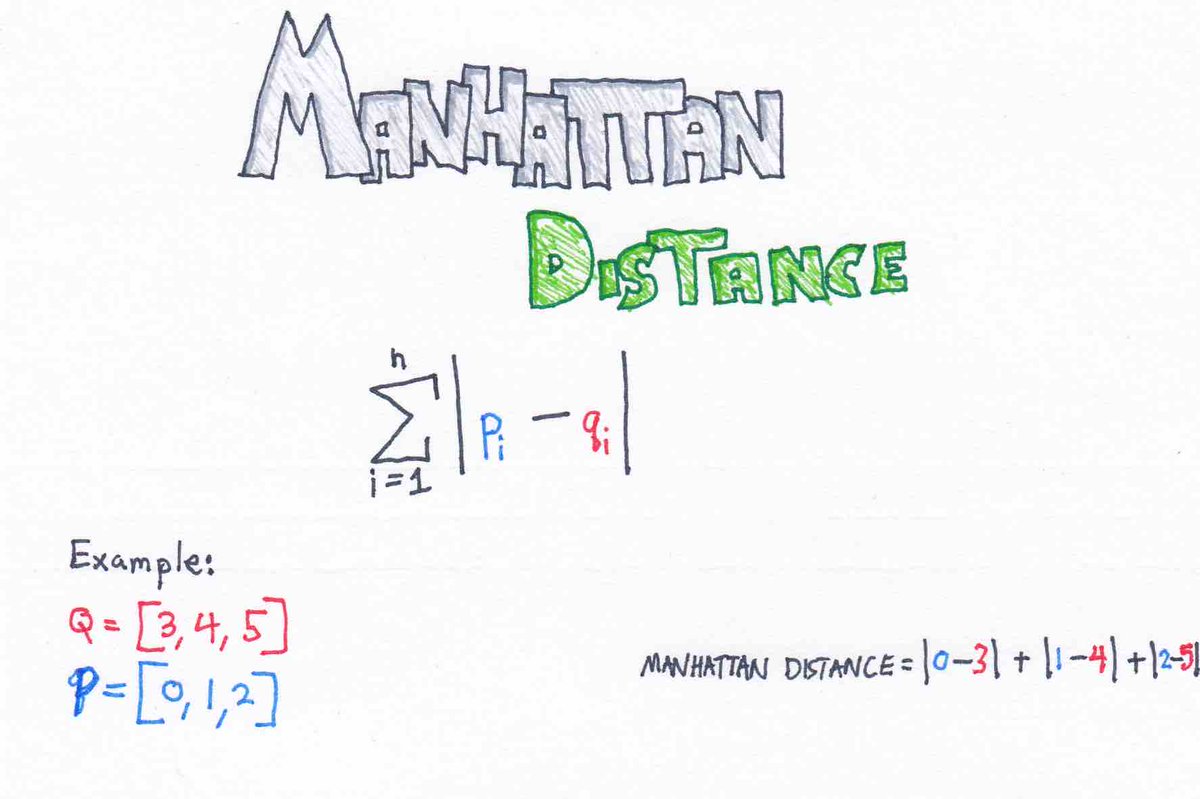 MANHATTAN
DISTANCE
n
∑ | pi − qi |
i=1
Example:
Q = [3, 4, 5]
P = [0, 1, 2]
MANHATTAN DISTANCE = |0-3| + |1-4| + |2-5|